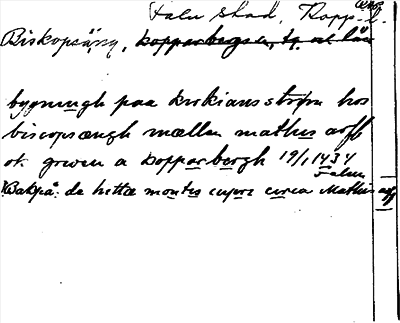 Falu stad, Kopp. l.
Biskopsäng, kopparbergs
bygningh paa krokians strøm hos
biscopsængh mællan mathis
oc grwen a kopparbergh 19/1 1434
Falun
Bakpå: de hetta montis cupri circa Mathis